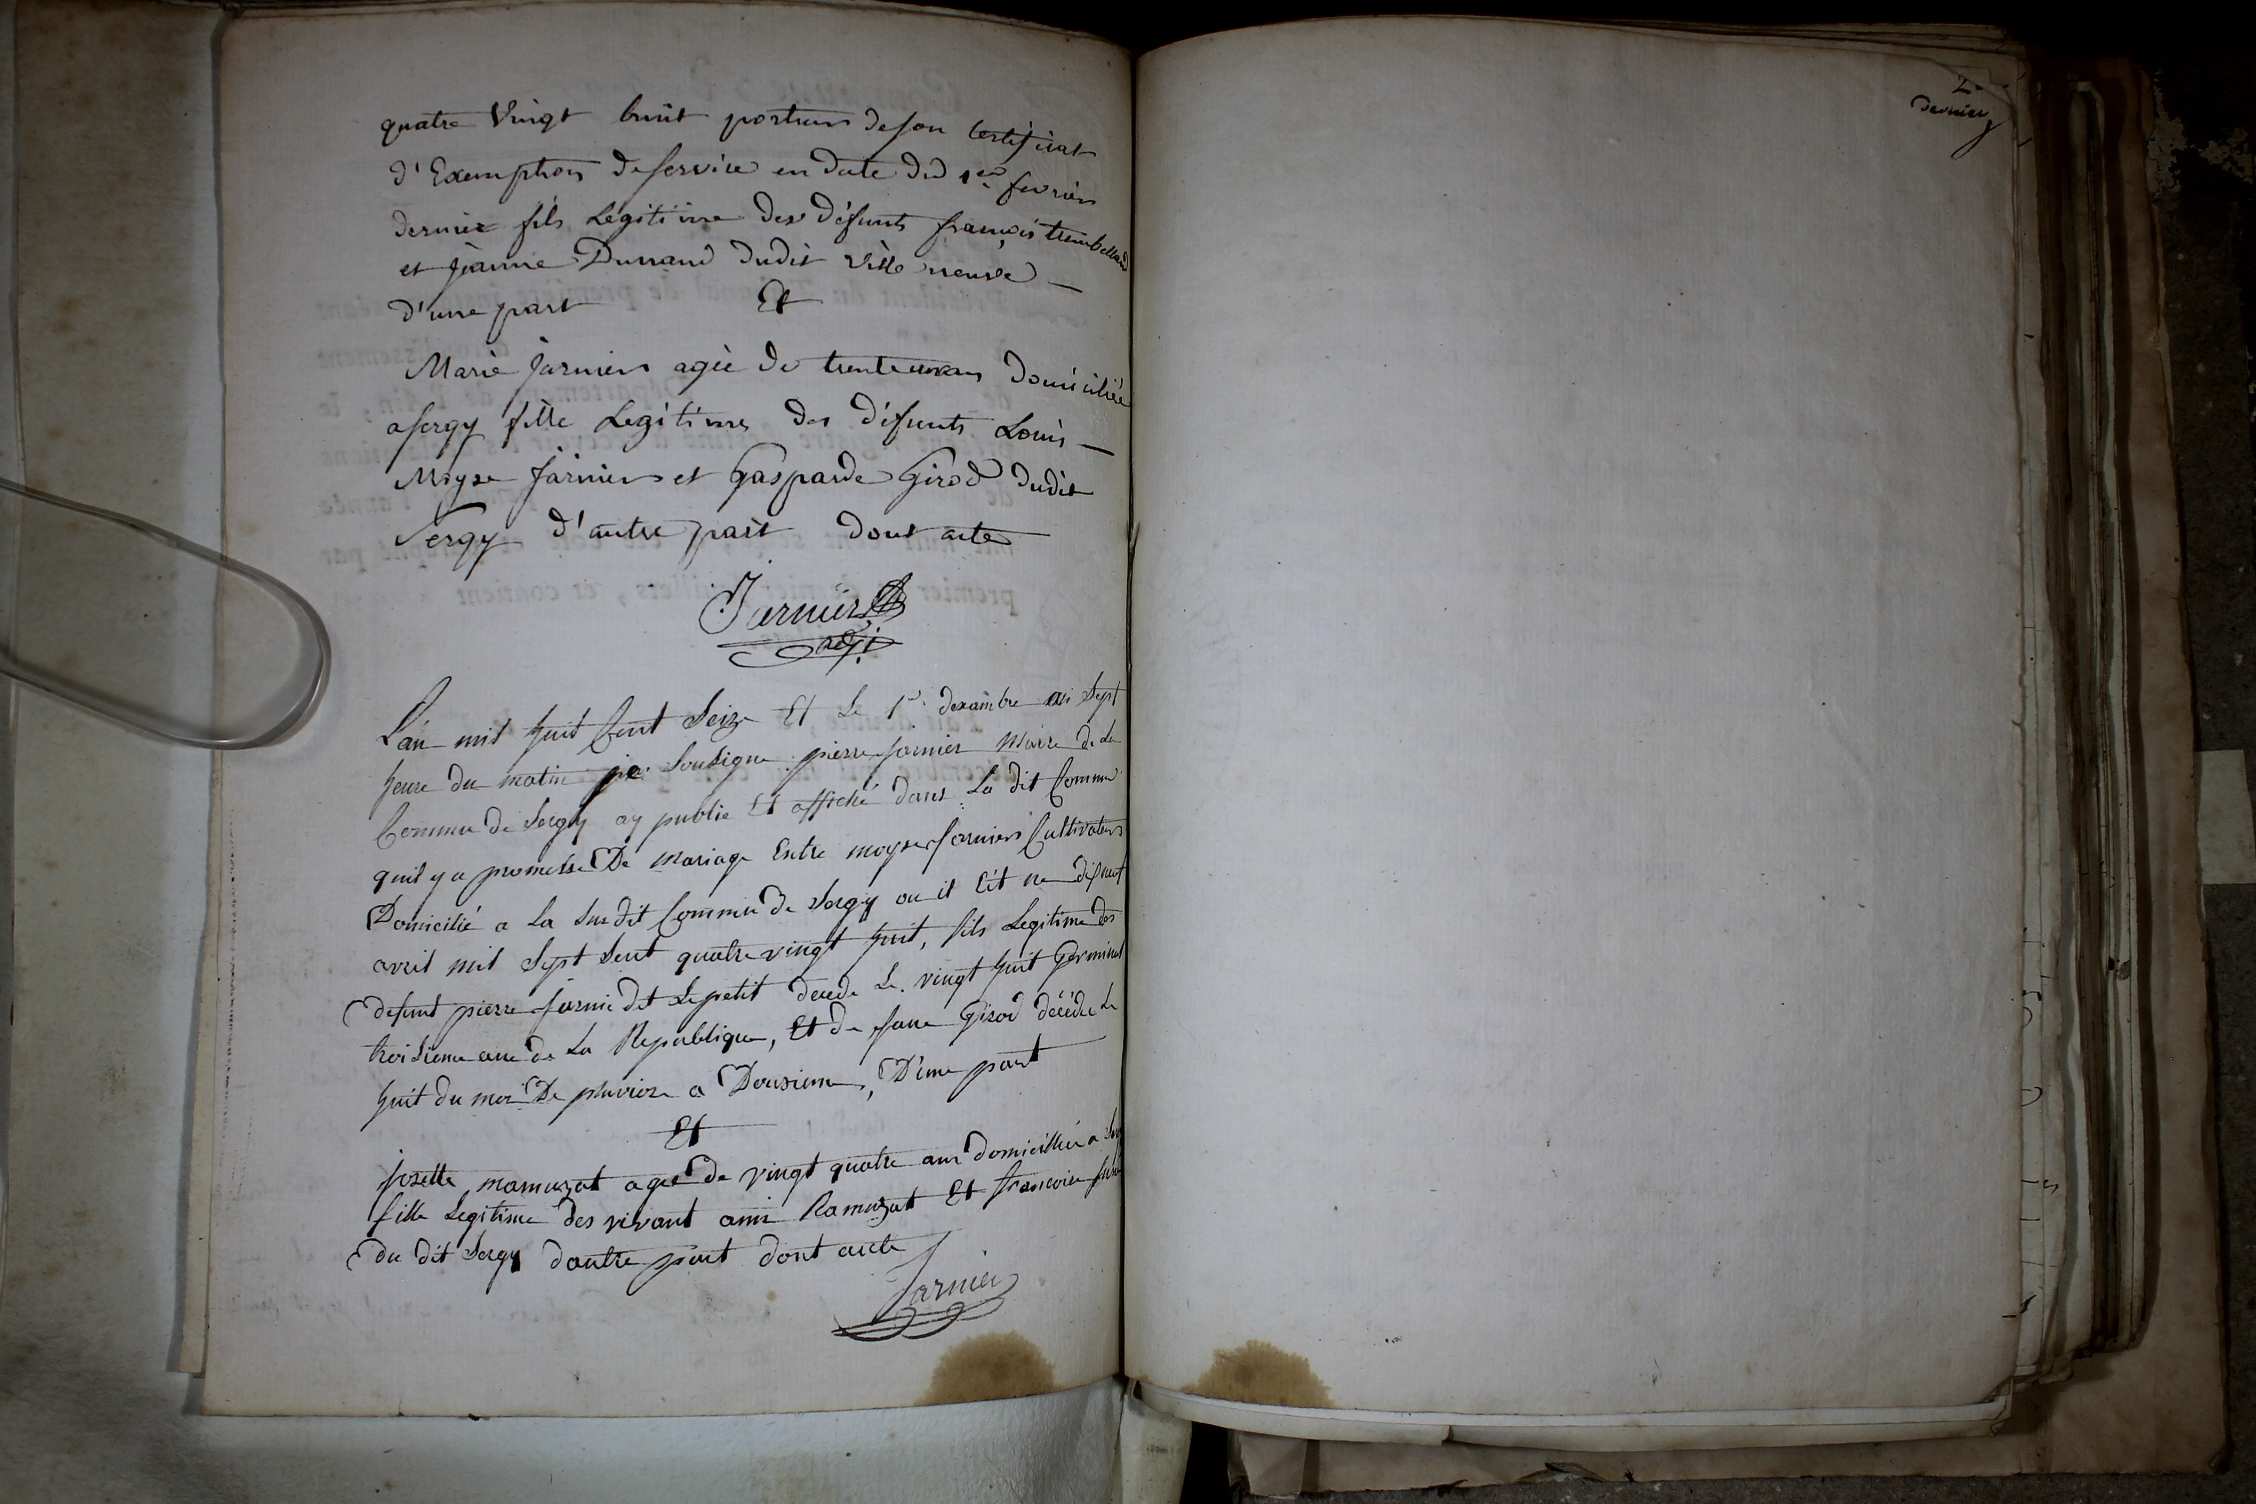 quatre Vingt huit porteur de son Certificat
d'Exemption de service en date du 1er fevrier
dernier fils Legitime des défunts françois
et jeanne Durrand dudit Ville neuve
d'une part Et
Marie jarnier agée de trente domiciliée
a sergy fille Legitime des défunts Louis
Moyse jarnier et Gasparde Girod dudit
Sergy d'autre part dont acte
Jarnier
adj.
L'an mil huit Cent Seize Et Le 1er desambre a Sept
heure du matin je Sousigne pierre jarnier Maire de La
Commune de Sergy ay publie Et affiché dans La dit Commune
quil y a promesse De mariage Entre moyse jarnier Cultivateur
Domicilié a La Sus dit Commune de Sergy ou il Cit ne
avril mil Sept Sent quatre vingt huit, fils Legitime des
defunt pierre jarnie dit Le petit decede Le vingt huit Germinal
troisieme anne de La Republique, Et de Girod décédée Le
huit du moi De pluviose a Dousieme, D'une part
Et
josette mamuzat agee de vingt quatre ans Domiciliée a
fille Legitime des vivant ami Ramuzat Et francoise
du dit Sergy dautre part dont acte
Jarnier
2
dernier